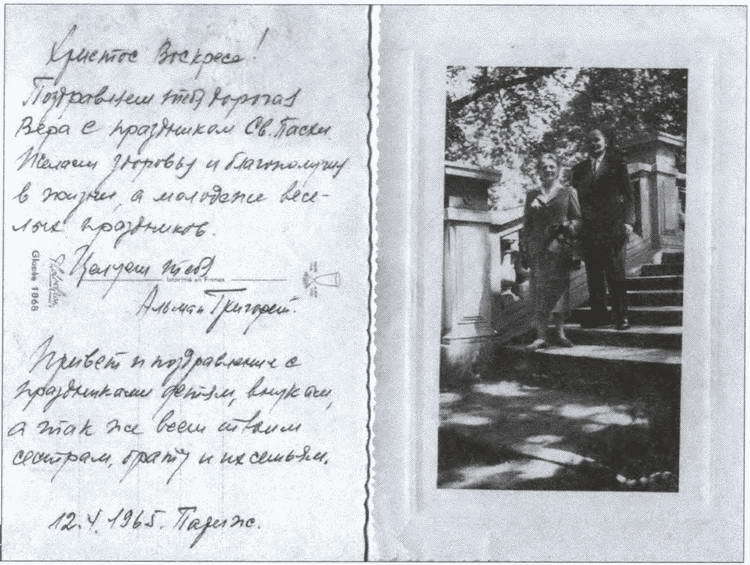 Христос Воскресе!
Поздравляем тебя дорогая
Вера с праздником Св. Пасхи
Желаем здоровья и благополучия
в жизни, а молодежи весе-
лых праздников.
Целуем тебя
Glacée 1868
Imprimé en France
Григорий.
Привет и поздравление с
праздниками детям, внукам,
а так же всем твоим
сестрам, брату и их семьям.
12.4.1965. Париж.